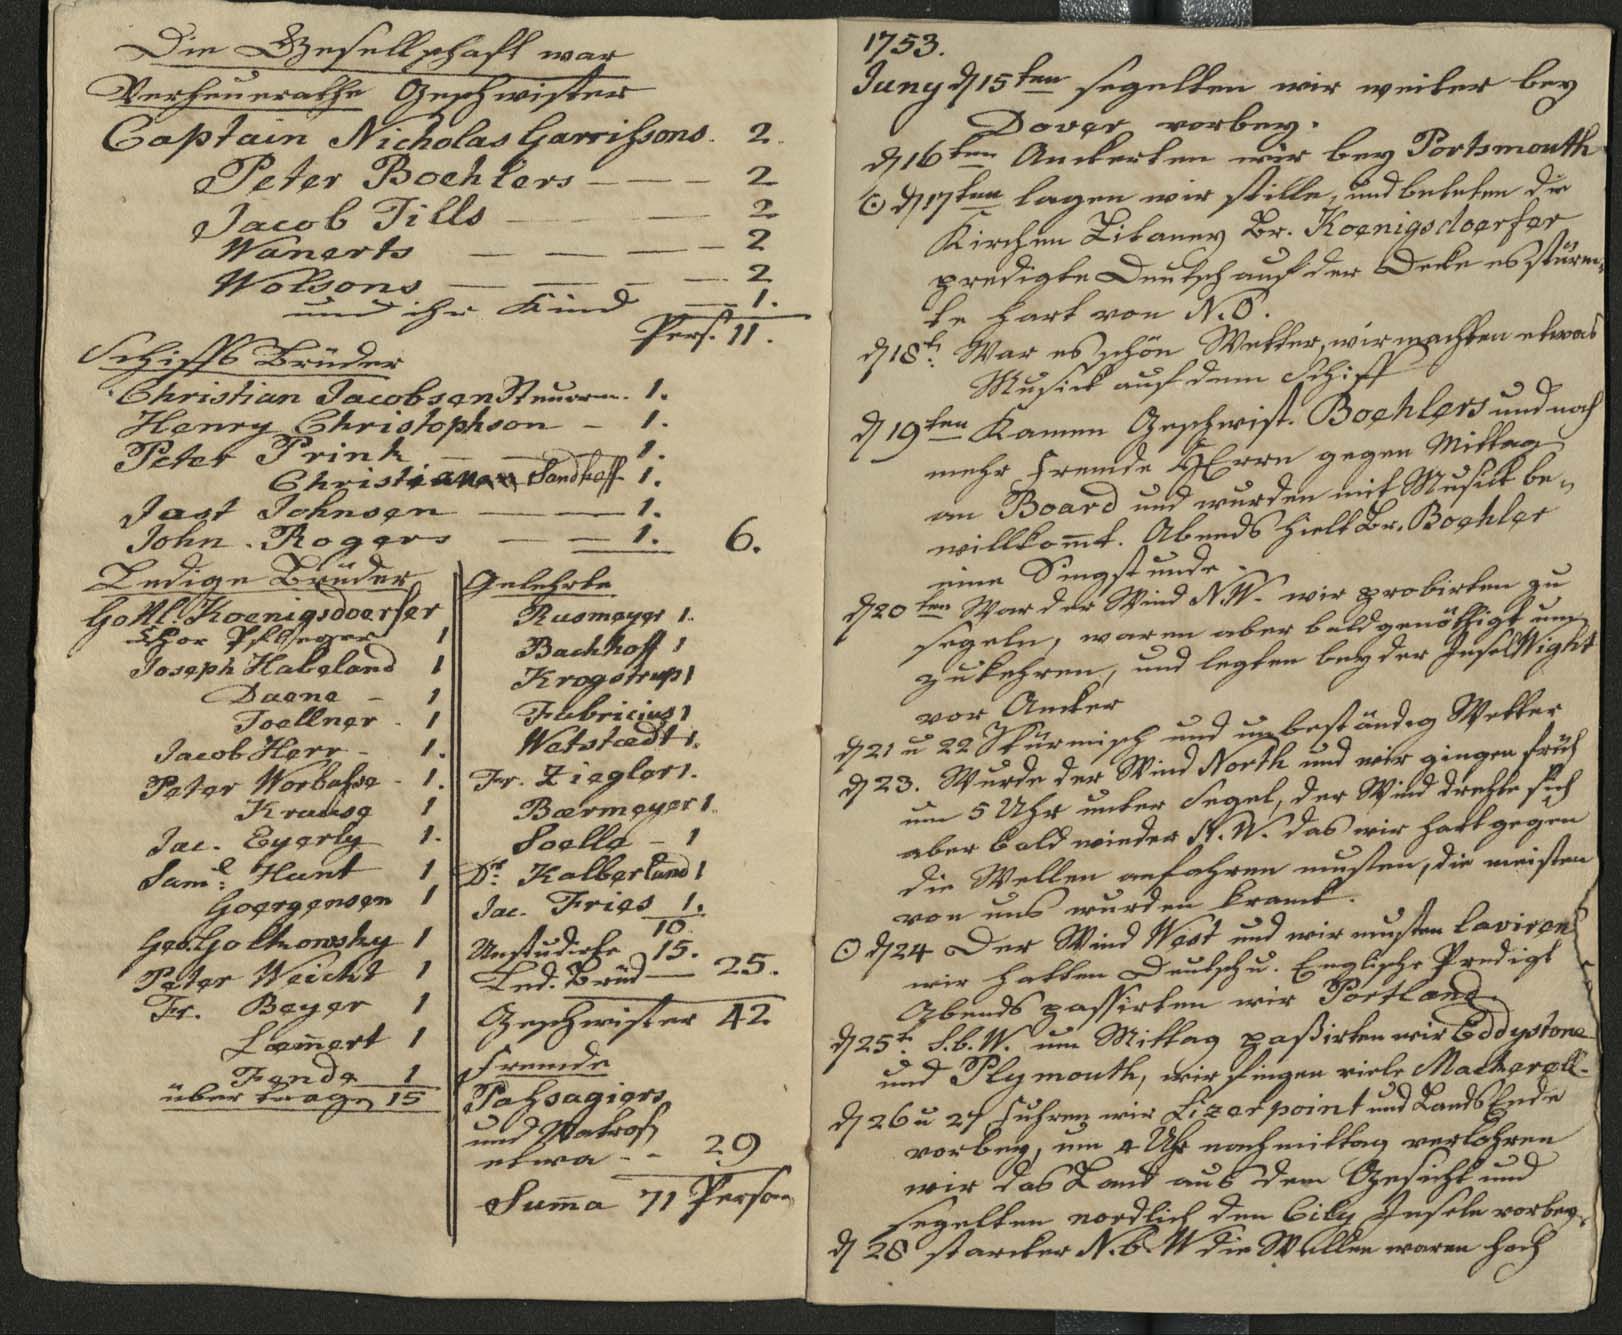 Die Gesellschaft war
Verheurathe Geschwister
Captain Nicholas Garrissons. 2.
Peter Boehlers — — — 2
Jacob Tills — — — 2.
Wanerts — — — — 2
Wolsons — — — — 2
und ihr Kind — 1.
Pers. 11.
Schiffs Brüder
Christian Jacobsen Steuerm. 1.
Henry Christophson — 1.
Peter Prink — — 1.
Christian Sandhoff 1.
Jast Johnsen — — 1.
John. Rogers — — 1. 6.
Ledige Brüder
Gottl. Koenigsdoerfer
Chor Pfleger 1
Joseph Habeland 1
Daene – 1
Toellner - 1
Jacob Herr - 1.
Peter Worbasse - 1.
Krause 1
Jac. Eyerly 1.
Saml: Hunt 1
Goergensen 1
Geo. Golkowsky 1
Peter Weicht 1
Fr. Beyer 1
Lam̄ert 1
Fende 1
über trage 15
Gelehrte
Rusmeyer 1.
Bachhoff 1
Krogstrup 1
Fabricius 1
Watstedt 1.
Fr. Ziegler 1.
Bærmeyer 1.
Soelle – 1
Dr: Kalberland 1
Jac. Fries 1.
10
Unstudirte 15.
Led. Brüd — 25.
Geschwister 42
Fremde
Passagiers
und Matros
etwa - - 29
Sum̄a 71 Person
1753.
Juny d 15ten segelten wir weiter bey
Dover vorbey.
d 16ten Anckerten wir bey Portsmouth
☉ d 17ten lagen wir stille, und beteten die
Kirchen Litaney Br. Koenigsdoerfer
predigte Deutsch auf der Decke es stürm-
te hart von N.O.
d 18t: War es schön Wetter, wir machten etwas
Musick auf dem Schiff
d 19ten Kamen Geschwist. Boehlers und noch
mehr fremde Herrn gegen Mittag
an Board und wurden mit Musick be-
willkom̄t. Abends hielt Br. Boehler
eine Singstunde.
d 20ten War der Wind N.W. wir probirten zu
segeln, waren aber bald genöthigt um
zukehren, und legten bey der Insel Wight
vor Ancker
d 21 u 22 Stürmisch und unbeständig Wetter
d 23. Wurde der Wind North und wir gingen früh
um 5 Uhr unter Segel, der Wind drehte sich
aber bald wieder N.W. das wir hart gegen
die Wellen anfahren musten, die meisten
von uns wurden kranck.
☉ d 24 Der Wind West und wir musten laviren
wir hatten Deutsch u. Englische Predigt
Abends passirten wir Portland
d 25t. S.b.W. um Mittag paßirten wir Eddystone
und Plymouth, wir fingen viele Mackerell.
d 26 u 27 fuhren wir Lizerpoint und Lands Ende
vorbey, um 4 Uhr nachmittag verlohren
wir das Land aus dem Gesicht und
segelten nordlich den Cily Inseln vorbey.
d 28 starcker N.b.W die Wellen waren hoch